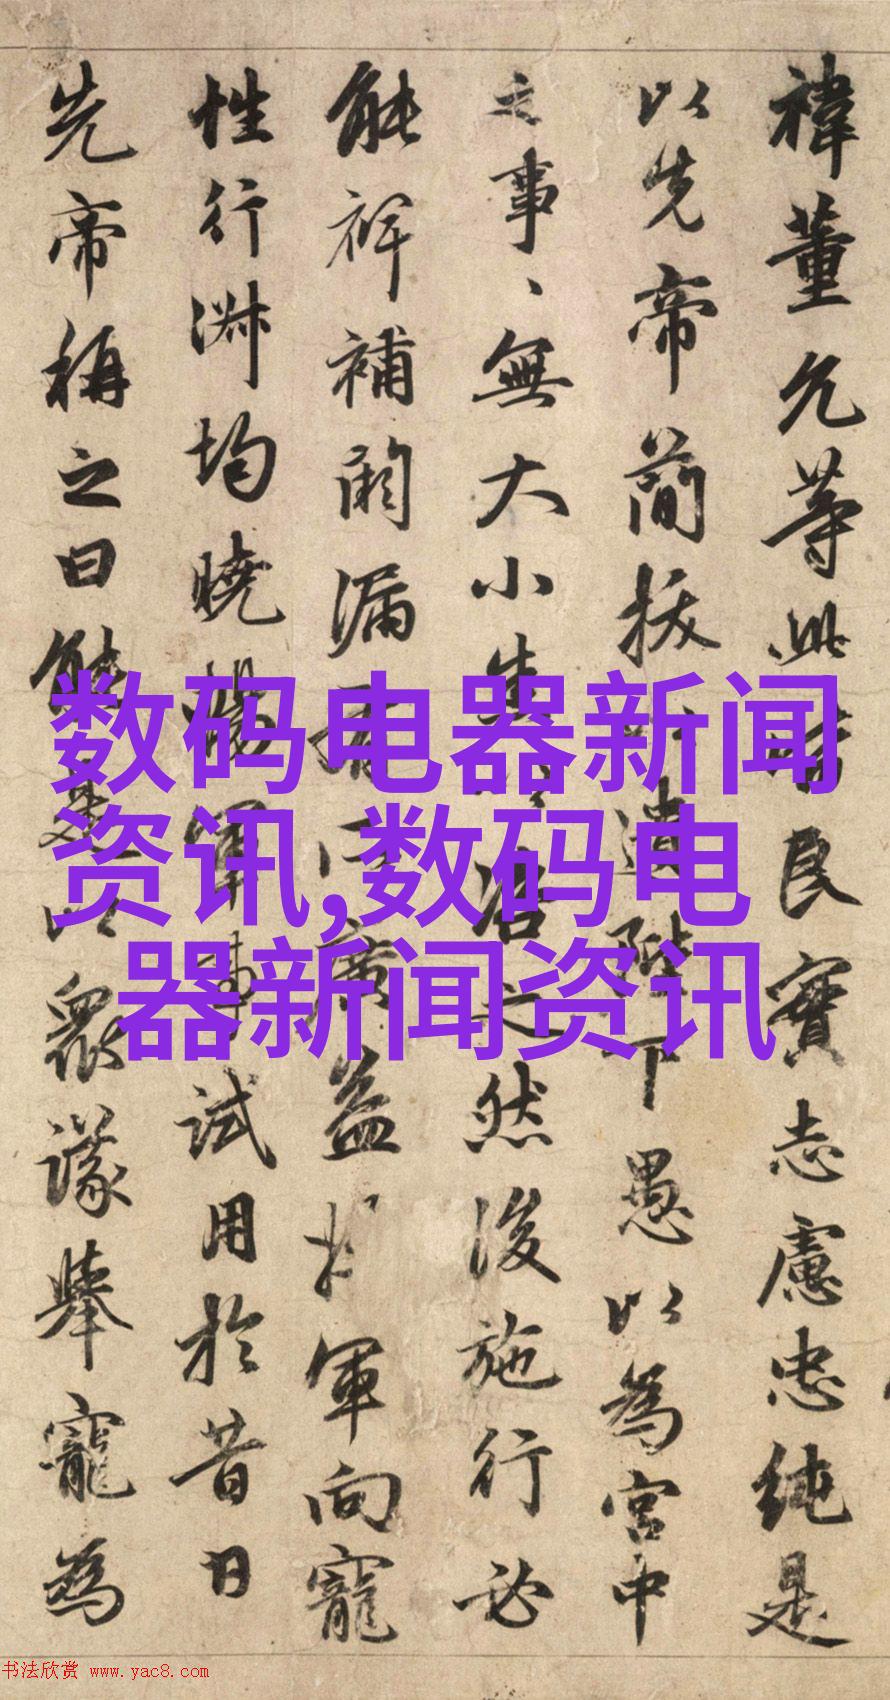 禕董允等此皆良實志慮忠純是
以先帝簡拔以遺陛下愚以為宮中
之事、無大小悉以咨之然後施行必
能裨補闕漏有所廣益將軍向寵
性行淑均曉暢軍事試用於昔日
先帝稱之曰能是以衆議舉寵為
数码电器新闻
资讯,数码电
器新闻资讯
书法欣赏 www.yac8.com